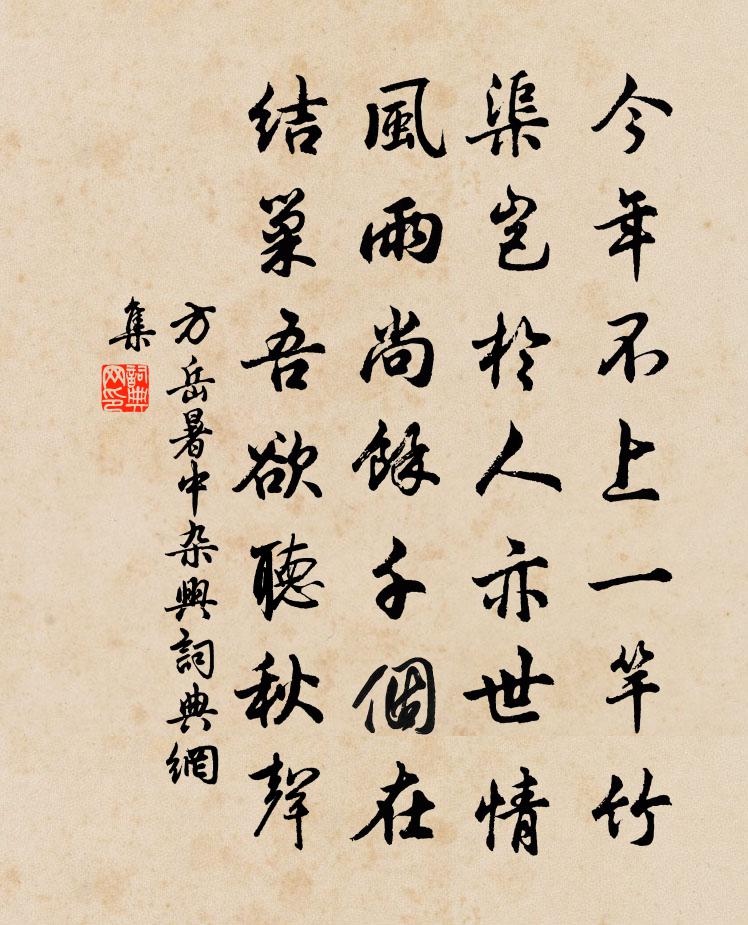 今年不上一竿竹
渠豈於人亦世情
風雨尚餘千個在
結巢吾欲聽秋聲
方岳暑中杂興詞典網
集
詞典
网印